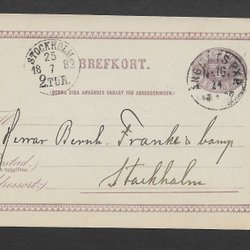 STOCKHOLM
25
18 7 83
2.TUR.
BREFKORT.
(DENNA SIDA ANVÄNDES ENDAST FÖR ADRESSERINGEN.)
Herrar Bernh. Franke & Comp
Stockholm